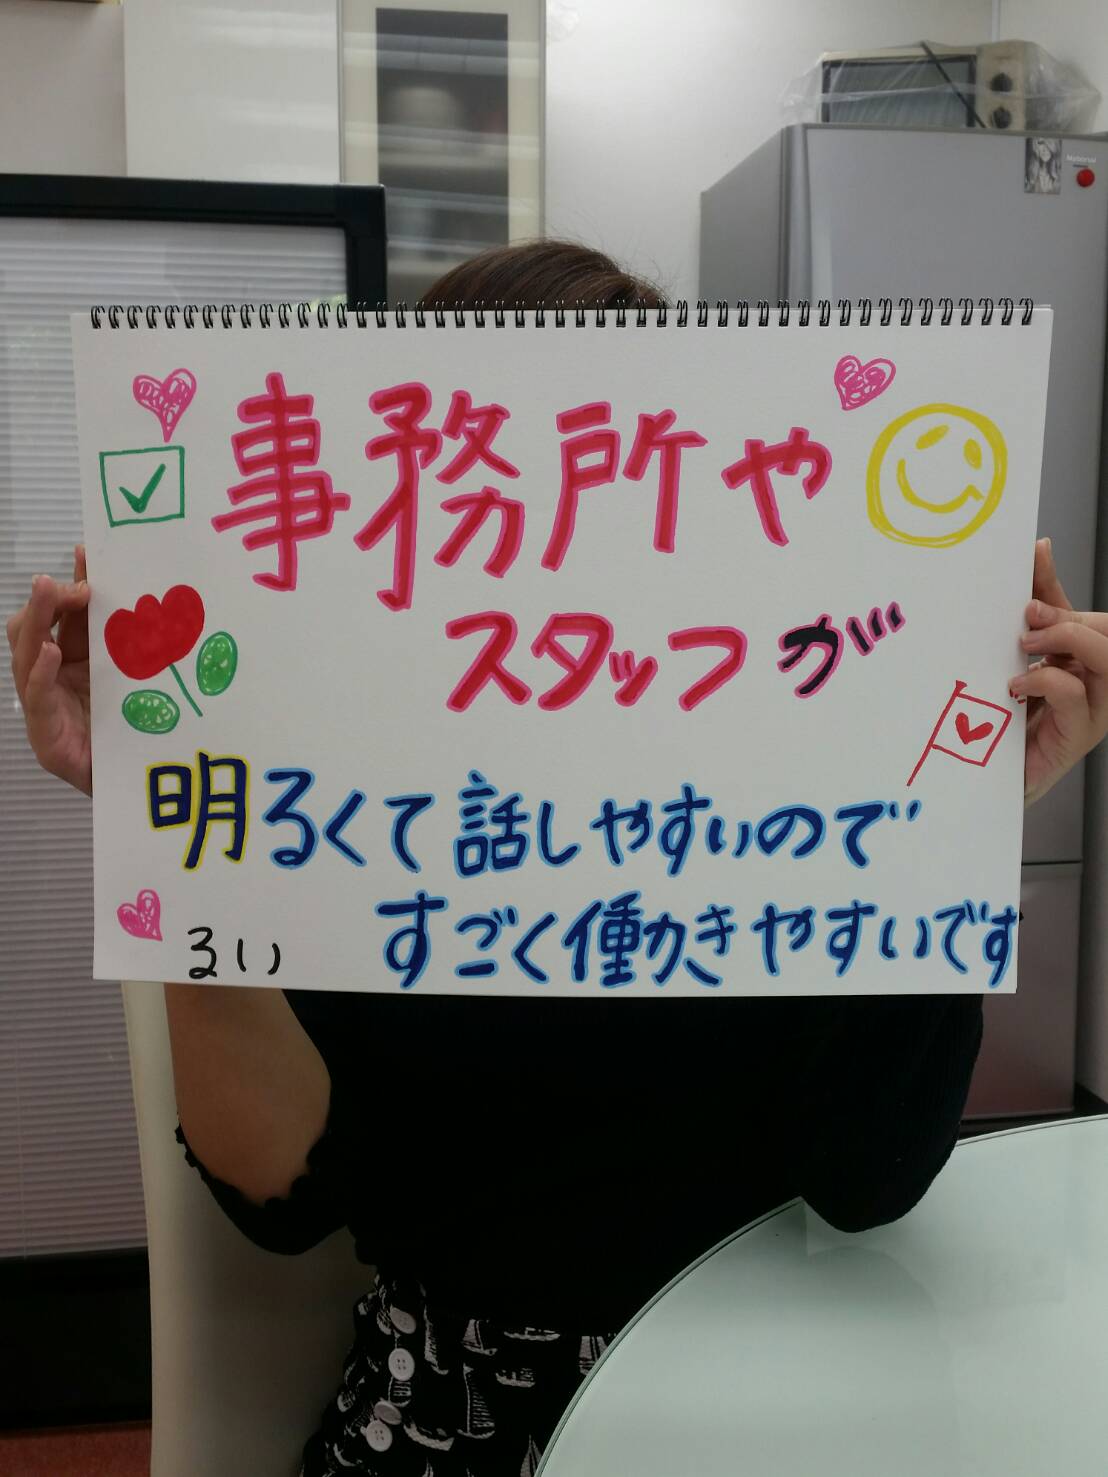 事務所や
スタッフが
明るくて話しやすいので
すごく働きやすいです
るい